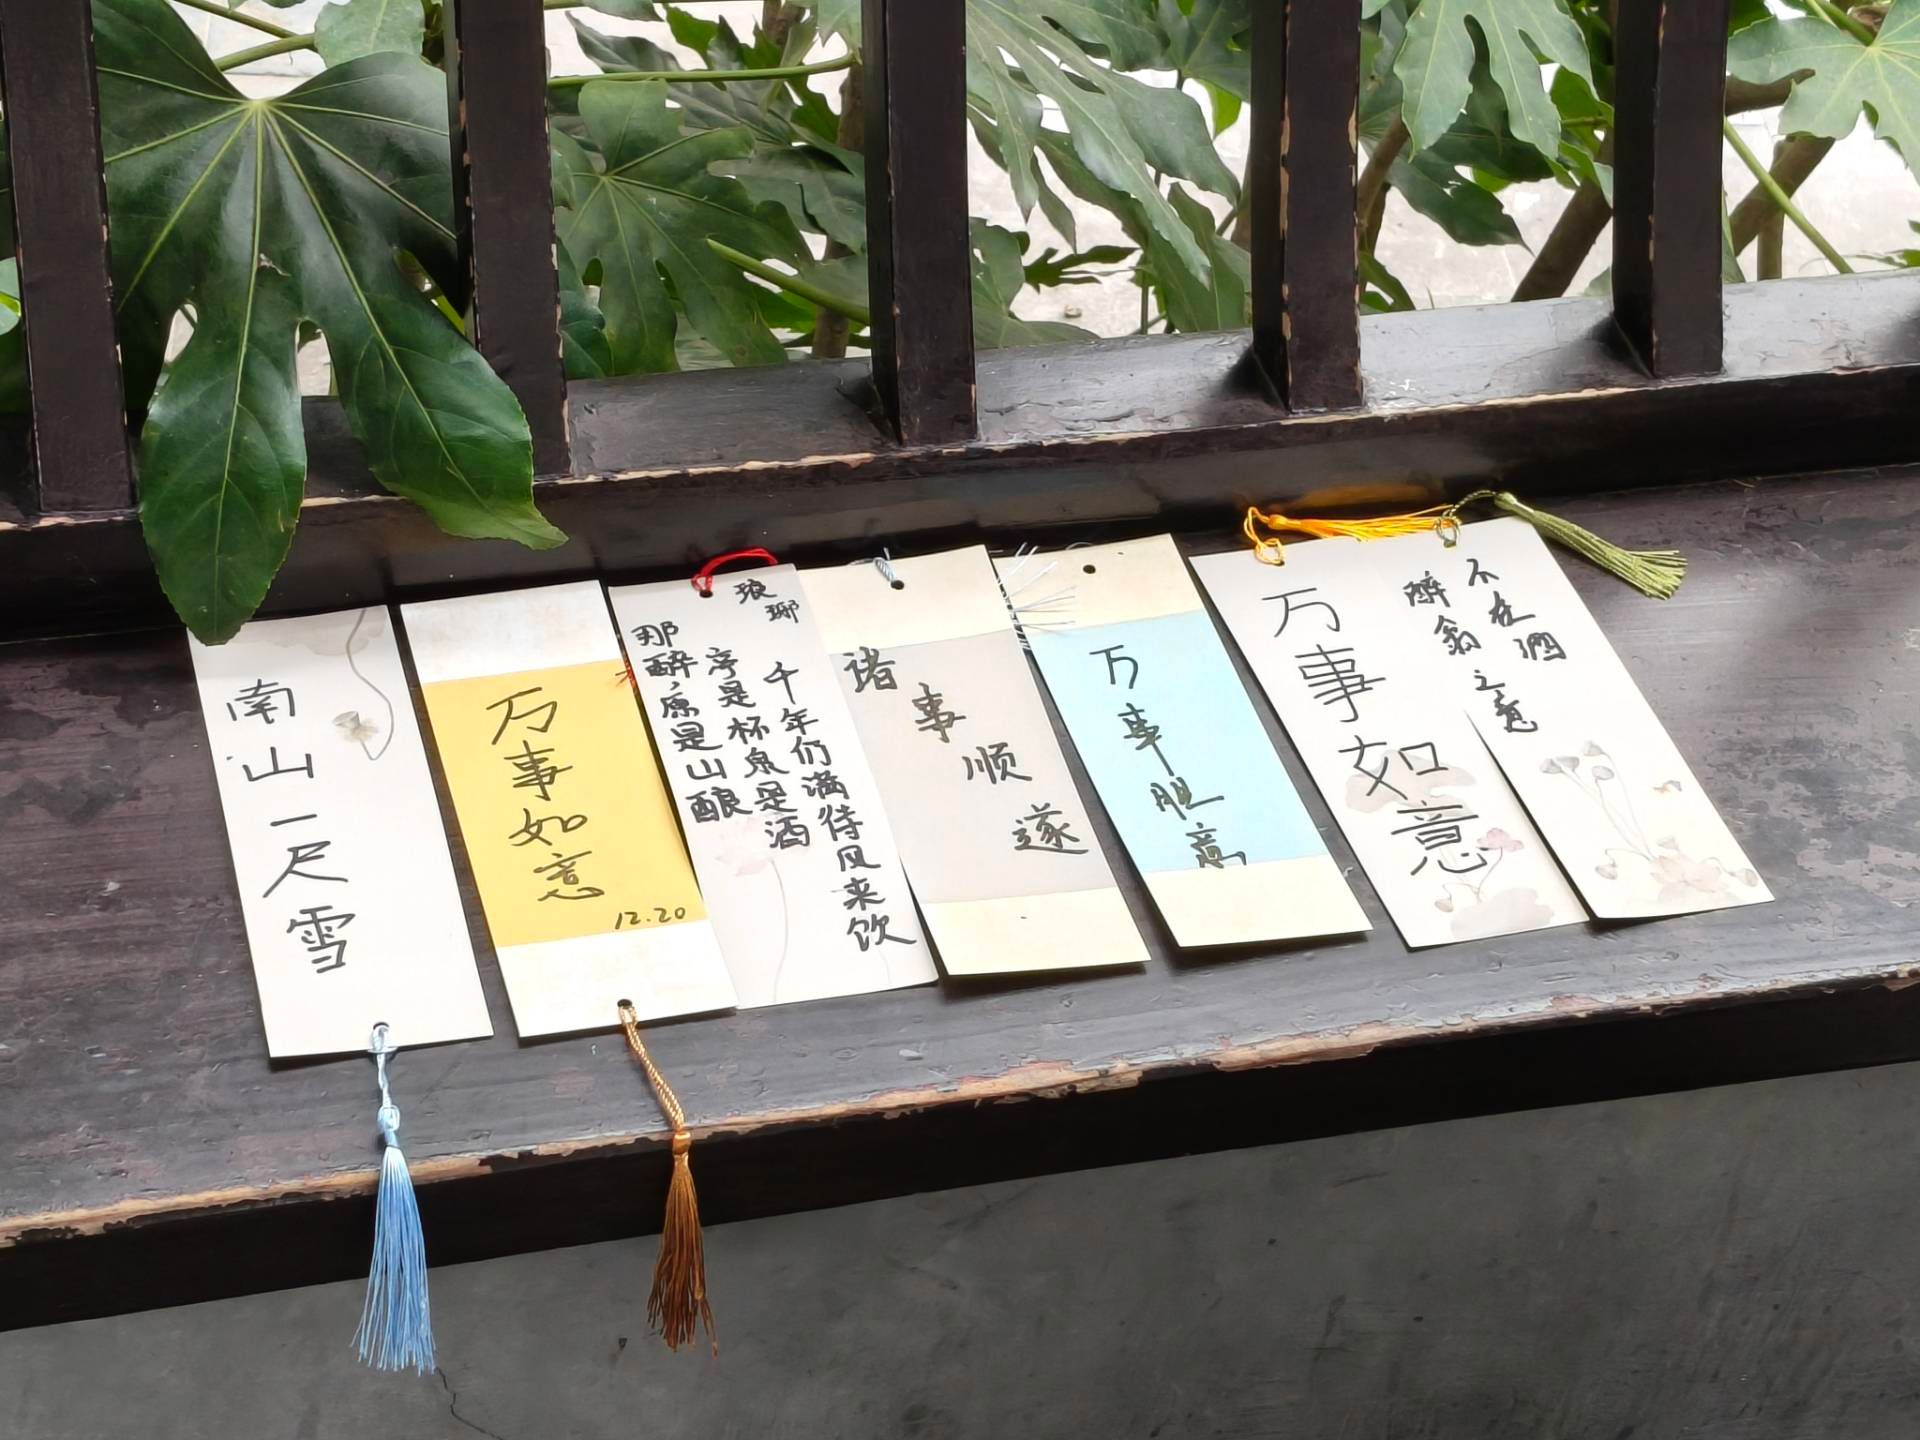 南山一尺雪
万事如意
12.20
琅琊
那醉原是山酿
亭是杯泉是酒
千年们满待风来饮
诸事顺遂
万事
万事如意
醉翁之意
不在酒